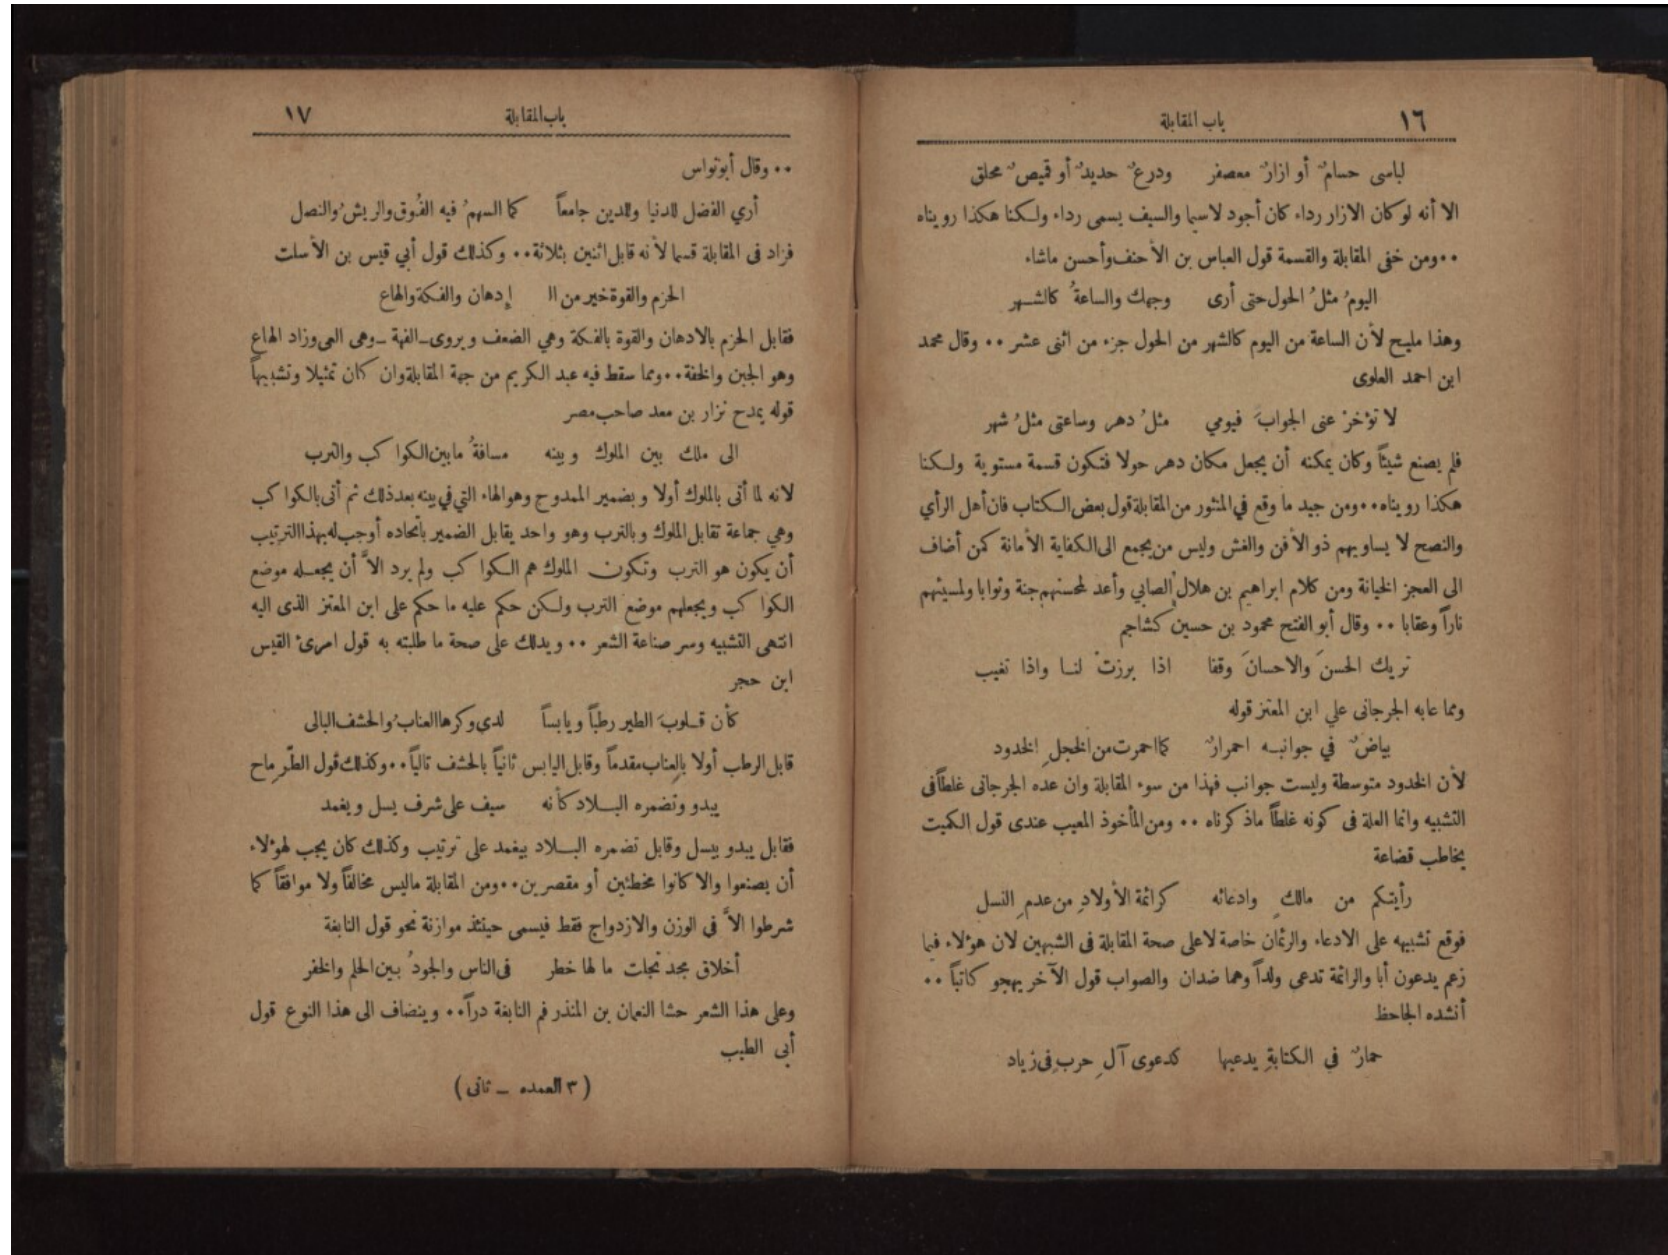 ١٦ باب المقابلة
لباسى حسامٌ أو ازارٌ معصفر ودرعٌ حديدٌ أو قميصٌ محلق
الا أنه لو كان الازار رداء كان أجود لاسيما والسيف يسمى رداء ولكنا هكذا رويناه
٠٠ ومن خفى المقابلة والقسمة قول العباس بن الأحنف وأحسن ماشاء
اليومُ مثلُ الحول حتى أرى وجهك والساعةُ كالشهر
وهذا مليح لأن الساعة من اليوم كالشهر من الحول جزء من اثنى عشر ٠٠ وقال محمد
ابن احمد العلوى
لا تؤخرْ عنى الجوابَ فيومي مثلُ دهر وساعتى مثلُ شهر
فلم يصنع شيئاً وكان يمكنه أن يجعل مكان دهر حولا فتكون قسمة مستوية ولكنا
هكذا رويناه ٠٠ ومن جيد ما وقع في المنثور من المقابلة قول بعض الكتاب فان أهل الرأي
والنصح لا يساويهم ذو الأفن والغش وليس من يجمع الى الكفاية الأمانة كمن أضاف
الى العجز الخيانة ومن كلام ابراهيم بن هلال الصابي وأعد لمحسنهم جنة وثوابا ولمسيئهم
ناراً وعقابا ٠٠ وقال أبو الفتح محمود بن حسين كشاجم
تريك الحسنَ والاحسانَ وقفا اذا برزتْ لنا واذا تغيب
ومما عابه الجرجانى علي ابن المعتز قوله
بياضٌ في جوانبه احمرارٌ كما احمرت من الخجلِ الخدود
لأن الخدود متوسطة وليست جوانب فهذا من سوء المقابلة وان عده الجرجانى غلطاً فى
التشبيه وانما العلة فى كونه غلطاً ماذكرناه ٠٠ ومن المأخوذ المعيب عندى قول الكميت
يخاطب قضاعة
رأيتكم من مالكٍ وادعائه كرائمة الأولادِ من عدمِ النسل
فوقع تشبيهه على الادعاء والرئمان خاصة لاعلى صحة المقابلة فى الشبهين لان هؤلاء فيما
زعم يدعون أبا والرائمة تدعى ولداً وهما ضدان والصواب قول الآخر يهجو كاتباً ٠٠
أنشده الجاحظ
حمارٌ في الكتابةِ يدعيها كدعوى آلِ حربٍ فى زياد
باب المقابلة ١٧
٠٠ وقال أبو نواس
أري الفضل للدنيا وللدين جامعاً كما السهمُ فيه الفُوق والريشُ والنصل
فزاد فى المقابلة قسما لأنه قابل اثنين بثلاثة ٠٠ وكذلك قول أبي قيس بن الأسلت
الحزم والقوة خير من ال إدهان والفكة والهاع
فقابل الحزم بالادهان والقوة بالفكة وهي الضعف ويروى ـ الفهة ـ وهى العى وزاد الهاع
وهو الجبن والخفة ٠٠ ومما سقط فيه عبد الكريم من جهة المقابلة وان كان تمثيلا وتشبيهاً
قوله يمدح نزار بن معد صاحب مصر
الى ملك بين الملوك وبينه مسافةُ مابين الكواكب والترب
لانه لما أتى بالملوك أولا وبضمير الممدوح وهو الهاء التي في بينه بعد ذلك ثم أتى بالكواكب
وهي جماعة تقابل الملوك وبالترب وهو واحد يقابل الضمير باتحاده أوجب له بهذا الترتيب
أن يكون هو الترب وتكون الملوك هم الكواكب ولم يرد الاَّ أن يجعله موضع
الكواكب ويجعلهم موضع الترب ولكن حكم عليه ما حكم على ابن المعتز الذى اليه
انتهى التشبيه وسر صناعة الشعر ٠٠ ويدلك على صحة ما طلبته به قول امرئ القيس
ابن حجر
كأن قلوبَ الطير رطباً ويابساً لدى وكرها العنابُ والحشف البالى
قابل الرطب أولا بالعناب مقدماً وقابل اليابس ثانياً بالحشف تالياً ٠٠ وكذلك قول الطّرماح
يبدو وتضمره البلاد كأنه سيف على شرف يسل ويغمد
فقابل يبدو بيسل وقابل تضمره البلاد بيغمد على ترتيب وكذلك كان يجب لهؤلاء
أن يصنعوا والا كانوا مخطئين أو مقصرين ٠٠ ومن المقابلة ماليس مخالفاً ولا موافقاً كما
شرطوا الاَّ في الوزن والازدواج فقط فيسمى حينئذ موازنة نحو قول النابغة
أخلاق مجد تجلت ما لها خطر فى الناس والجودُ بين الحلم والخفر
وعلى هذا الشعر حشا النعمان بن المنذر فم النابغة دراً ٠٠ وينضاف الى هذا النوع قول
أبى الطيب
( ٣ العمده ــ ثانى )